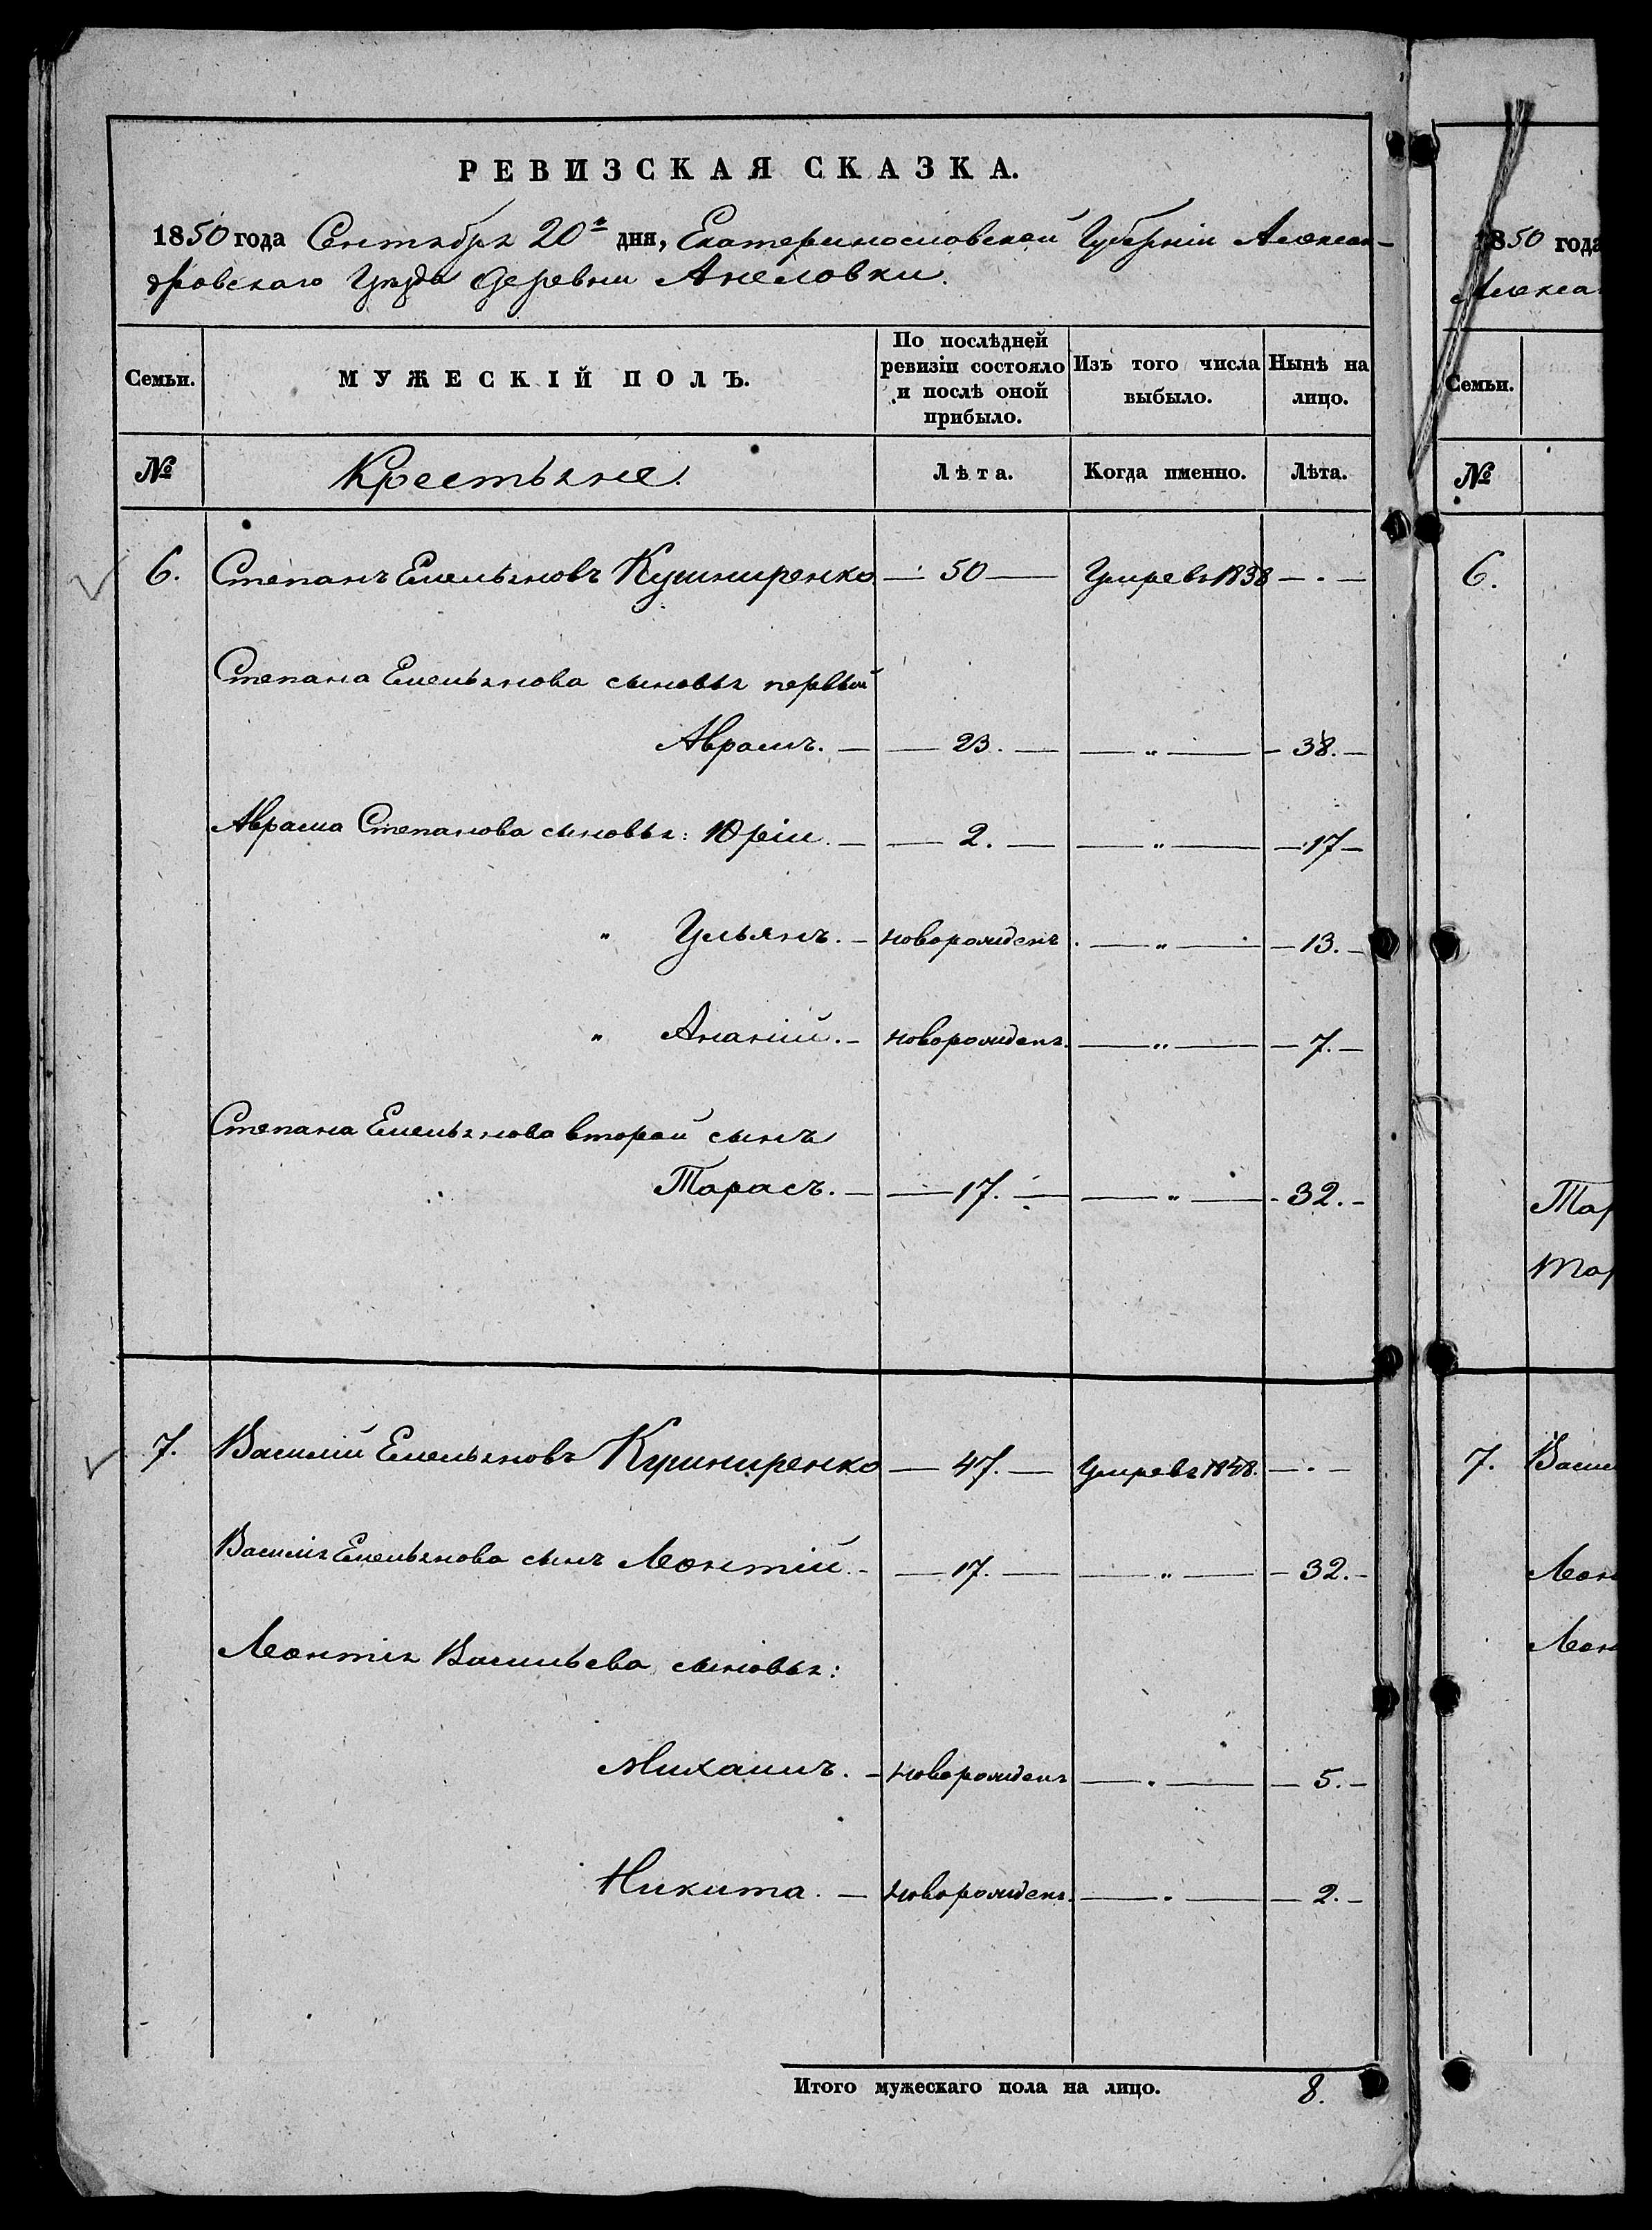 РЕВИЗСКАЯ СКАЗКА.
1850 года Сентября 20го дня, Екатеринославской Губерніи Алексан-
дровскаго Уезда деревни Анеловки.
Семьи. МУЖЕСКІЙ ПОЛЪ. По послѣдней ревизіи состояло и послѣ оной прибыло. Изъ того числа выбыло. Нынѣ на лицо.
№ Крестьяне. Лѣта. Когда именно. Лѣта.
6. Степанъ Емельяновъ Кушниренко — 50 — Умре въ 1838 — . —
Степана Емельянова сыновья первый
Аврамъ. — — 23. — — „ — — 38. —
Аврама Степанова сыновья: Юрій. — — 2. — — „ — — 17 —
„ Ульянъ. — новорожденъ. — „ — — 13. —
„ Ананій. — новорожденъ. — „ — — 7. —
Степана Емельянова второй сынъ
Тарасъ. — — 17. — — „ — — 32. —
7. Василій Емельяновъ Кушниренко — 47. — Умре въ 1848. — . —
Василія Емельянова сынъ Леонтій. — — 17. — — „ — — 32. —
Леонтія Васильева сыновья:
Михаилъ. — новорожденъ — „ — — 5. —
Никита. — новорожденъ. — „ — — 2. —
Итого мужескаго пола на лицо. 8.
1850 года
Алекса
Семьи.
№
6.
Тар
Тар
7. Васи
Леон
Леон